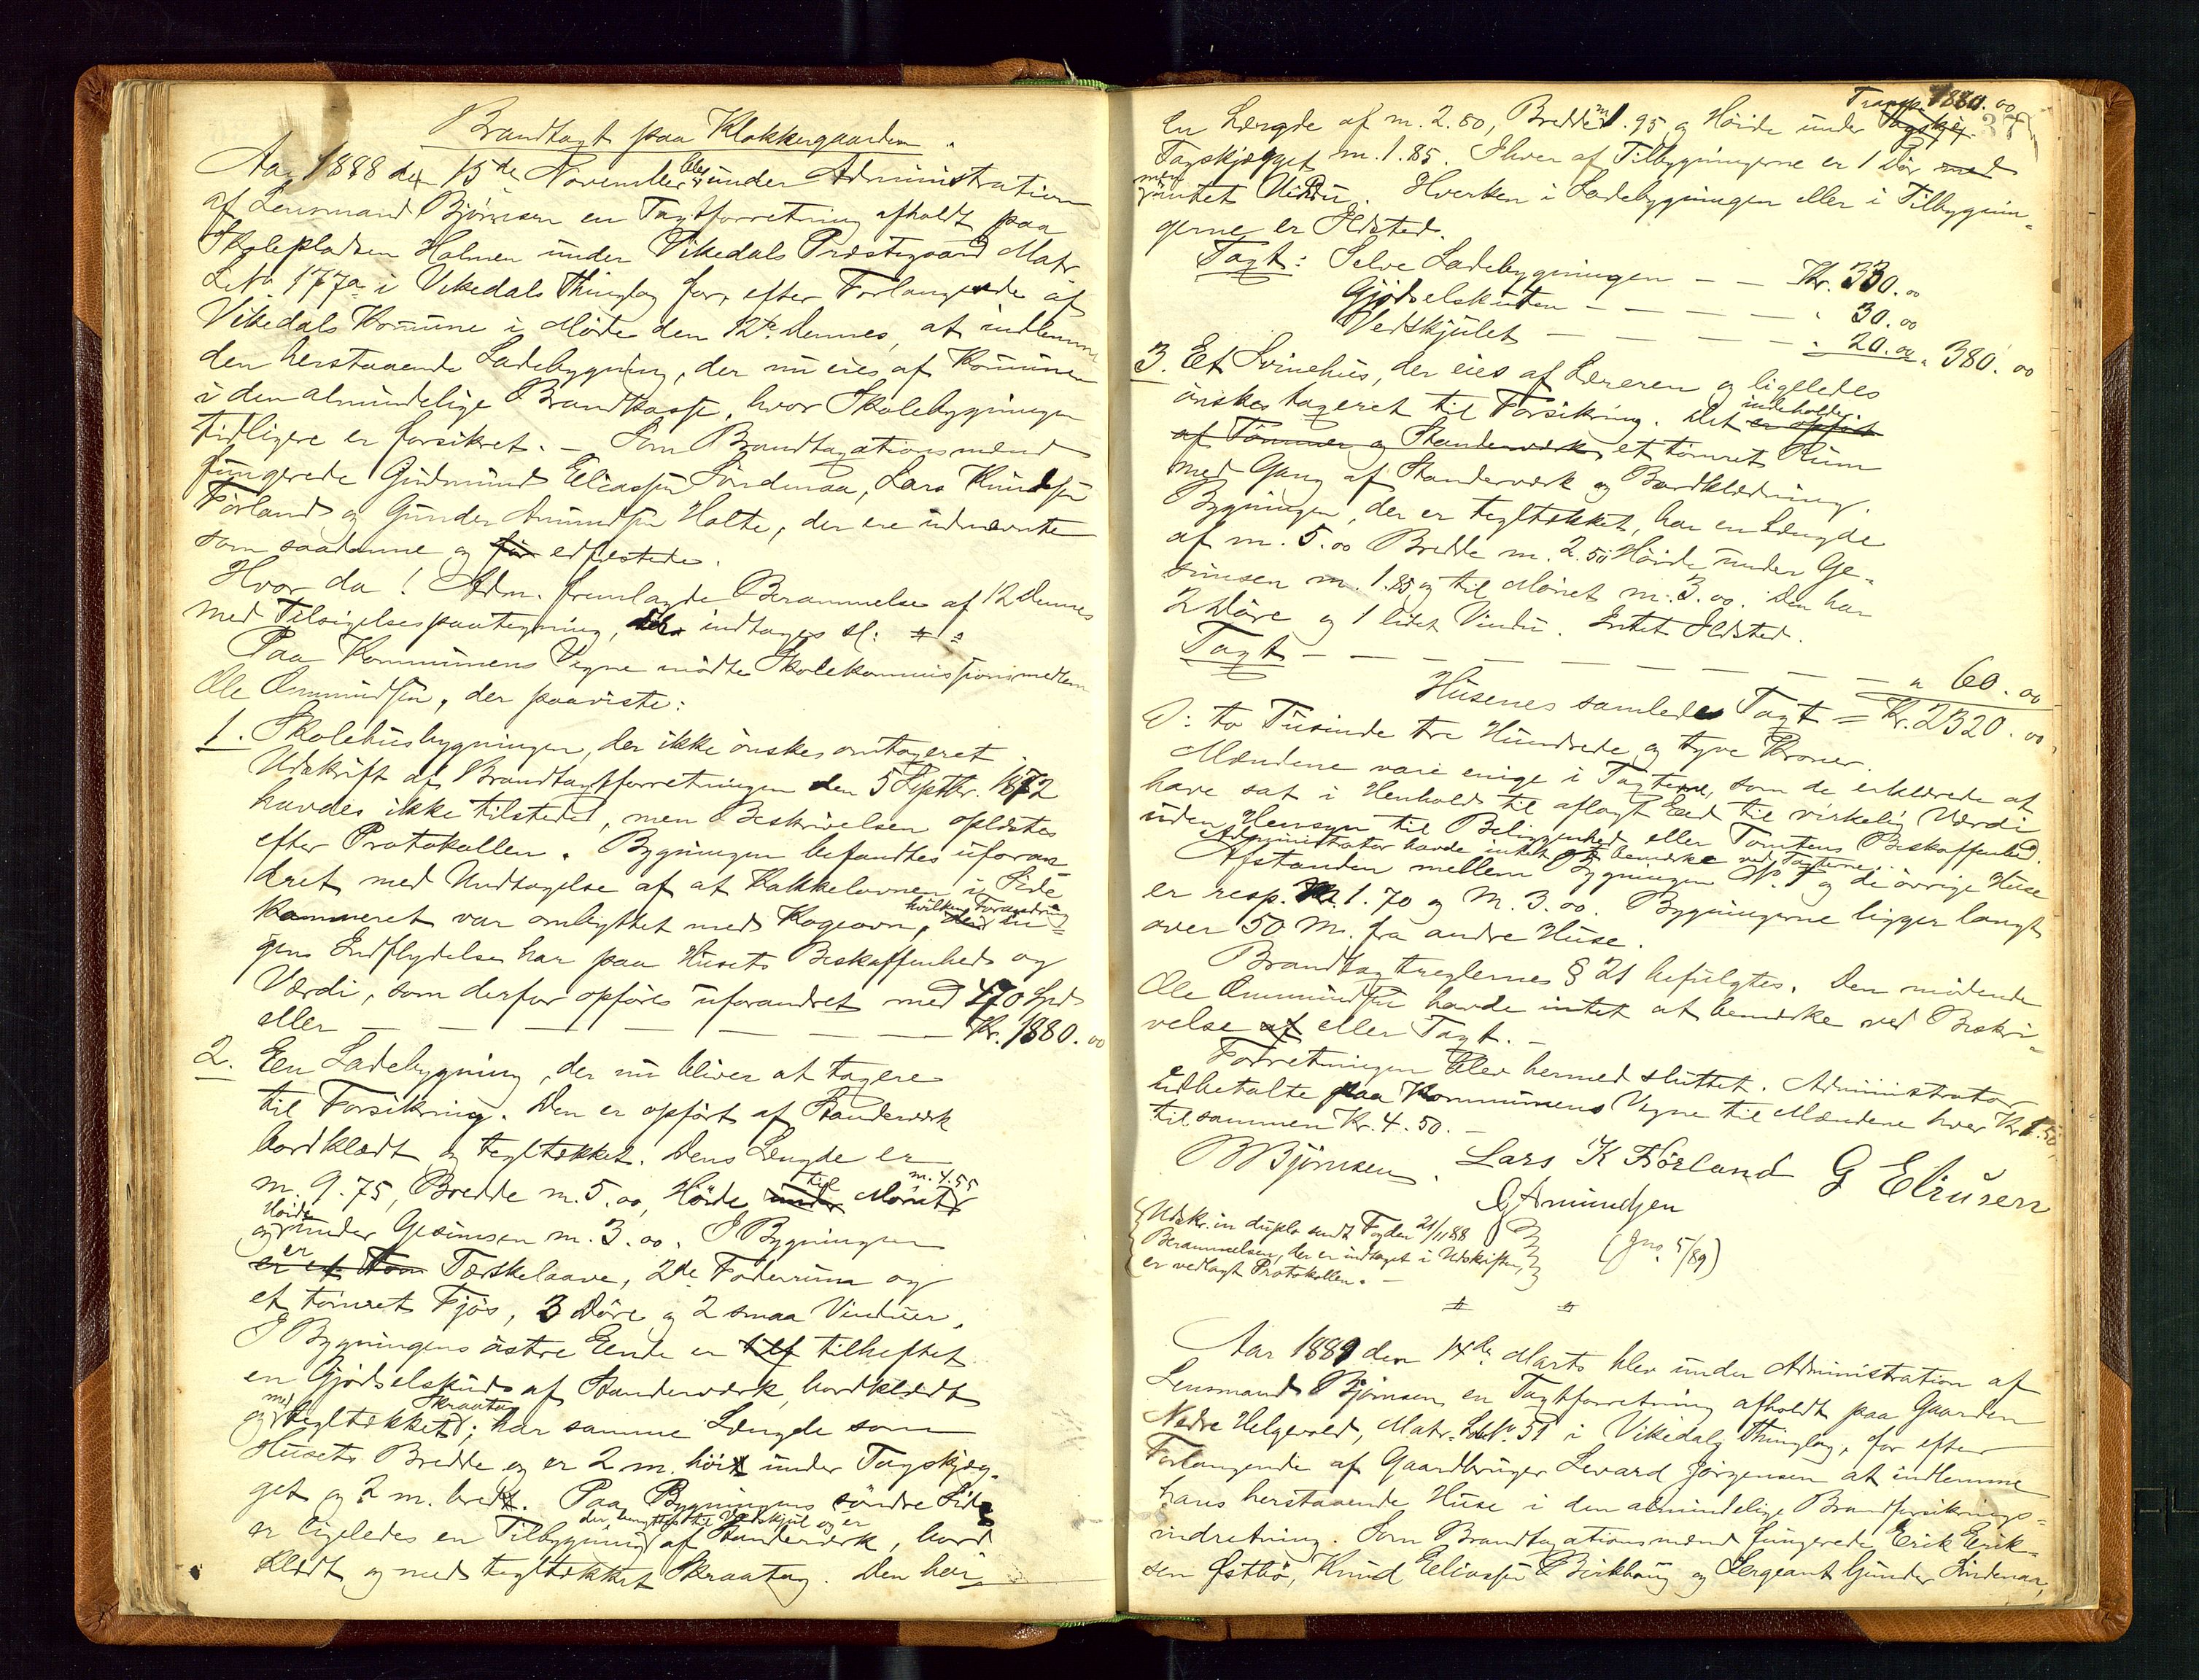 Brandtaxt paa Klokkergaarden.
Aar 1888 den 15de November blev under Administration
af Lensmand Bjørnsen en Taxtforretning afholdt paa
Skolepladsen Holmen under Vikedals Præstegaard Matr
L.No 177a i Vikedals Thinglag for, efter Forlangende af
Vikedals Kommune i Møde den 12te dennes, at indlemme
den herstaaende Ladebygning, der nu eies af Kommunen
i den almindelige Brandkasse, hvor Skolebygningen
tidligere er forsikret. – Som Brandtaxationsmænd
fungerede Gudmund Eliassen Søndenaa, Lars Knudsen
Førland og Gunder Amundsen Holte, der ere udnævnte
som saadanne og for edfæstede.
Hvor da! Adm. fremlagde Berammelse af 12 dennes
med Tilsigelsespaategning, der indtages sl:
Paa Kommunens Vegne mødte Skolekommissionsmedlem
Ole Ommundsen, der paaviste:
1. Skolehusbygningen, der ikke ønskes omtaxeret.
Udskrift af Brandtaxtforretningen den 5 Septbr. 1872
havdes ikke tilstede, men Beskrivelsen oplæstes
efter Protokollen. Bygningen befandtes uforan-
dret med Undtagelse af at Kakkelovnen i Side
kammeret var ombyttet med Kogeovn, hvilken Forandring in-
gen Indflydelse har paa Husets Beskaffenhed og
Værdi, som derfor opføres uforandret med 470 Spd
eller — — — — — — Kr. 1880.00
2. En Ladebygning, der nu bliver at taxere
til Forsikring. Den er opført af Standerværk
bordklædt og tegltækket. Dens Længde er
m. 9.75, Bredde m. 5.00, Høide under til Mønet m. 4.55
og Høide under Gesimsen m. 3.00. I Bygningen
er et Tom er Tærskelaave, 2de Foderrum og
et tømret Fjøs, 3 Døre og 2 smaa Vinduer.
I Bygningens østre Ende er tilf tilheftet
en Gjødselskud af Standerværk, bordklædt
og med tegltækket Skraatag; har samme Længde som
Husets Bredde og er 2 m. høit under Tagskjæg-
get og 2 m. bredt. Paa Bygningens søndre Side
er ligeledes en Tilbygning der benyttes til Vedskjul og er af Standerværk, bord
klædt og med tegltækket Skraatag. Den har
Transp. 1880.00
37
en Længde af m. 2.80, Bredde m 1.95 og Høide under Tagskjæg
Tagskjægget m. 1.85. I hver af Tilbygningerne er 1 Dør med
men intet Vindu. Hverken i Ladebygningen eller i Tilbygnin-
gerne er Ildsted.
Taxt: Selve Ladebygningen — — Kr. 330.00
Gjødselskuden — — — — — " 30.00
Vedskjulet — — — — — " 20.00 " 380.00
3. Et Svinehus, der eies af Læreren og ligeledes
ønskes taxeret til Forsikring. Det er opført indeholder
af Tømmer og Standerværk, et tømret Rum
med Gang af Standerværk og Bordklædning.
Bygningen, der er tegltækket, har en Længde
af m. 5.00 Bredde m. 2.50 Høide under Ge-
simsen m. 1.85 og til Mønet m. 3.00. Den har
2 Døre og 1 lidet Vindu. Intet Ildsted.
Taxt — — — — — — — — " 60.00
Husenes samlede Taxt = Kr. 2320.00
ɔ: to Tusinde tre Hundrede og tyve Kroner.
Mændene vare enige i Taxterne, som de erklærede at
have sat i Henhold til aflagt Eed til virkelig Værdi
uden Hensyn til Beliggenhed eller Tomtens Beskaffenhed.
Administrator havde intet at bemærke ved Taxterne.
Afstanden mellem Bygningen No. 1 og de øvrige Huse
er resp. M. 1.70 og M. 3.00. Bygningerne ligger langt
over 50 M. fra andre Huse.
Brandtaxtreglernes § 21 befulgtes. Den mødende
Ole Ommundsen havde intet at bemærke ved Beskri-
velse af eller Taxt. –
Forretningen blev hermed sluttet. Administrator
udbetalte paa Kommunens Vegne til Mændene hver Kr 1.50,
tilsammen Kr. 4.50. –
B Bjørnsen. Lars K Førland G Eliasen
G Amundsen
Udskr. in duplo sendt Fogden 21/11 88
Berammelsen, der er indtaget i Udskriften,
er vedlagt Protokollen. –
(Jno. 5/89)
Aar 1889 den 14de Marts blev under Administration af
Lensmand Bjørnsen en Taxtforretning afholdt paa Gaarden
Nedre Helgevold, Matr. LNo. 51 i Vikedals Thinglag, for efter
Forlangende af Gaardbruger Sevard Jørgensen at indlemme
hans herstaaende Huse i den almindelige Brandforsikrings-
indretning. Som Brandtaxationsmænd fungerede Erik Erik-
sen Østbø, Knud Eliassen Birkhaug og Sergeant Gunder Søndenaa,